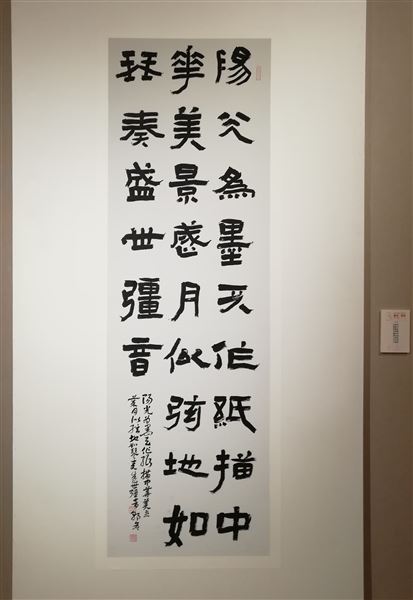 陽光為墨天作紙描中
華美景歲月似弦地如
琴奏盛世彊音
陽光為墨天作紙描中華美景
歲月似弦地如琴奏盛世彊音